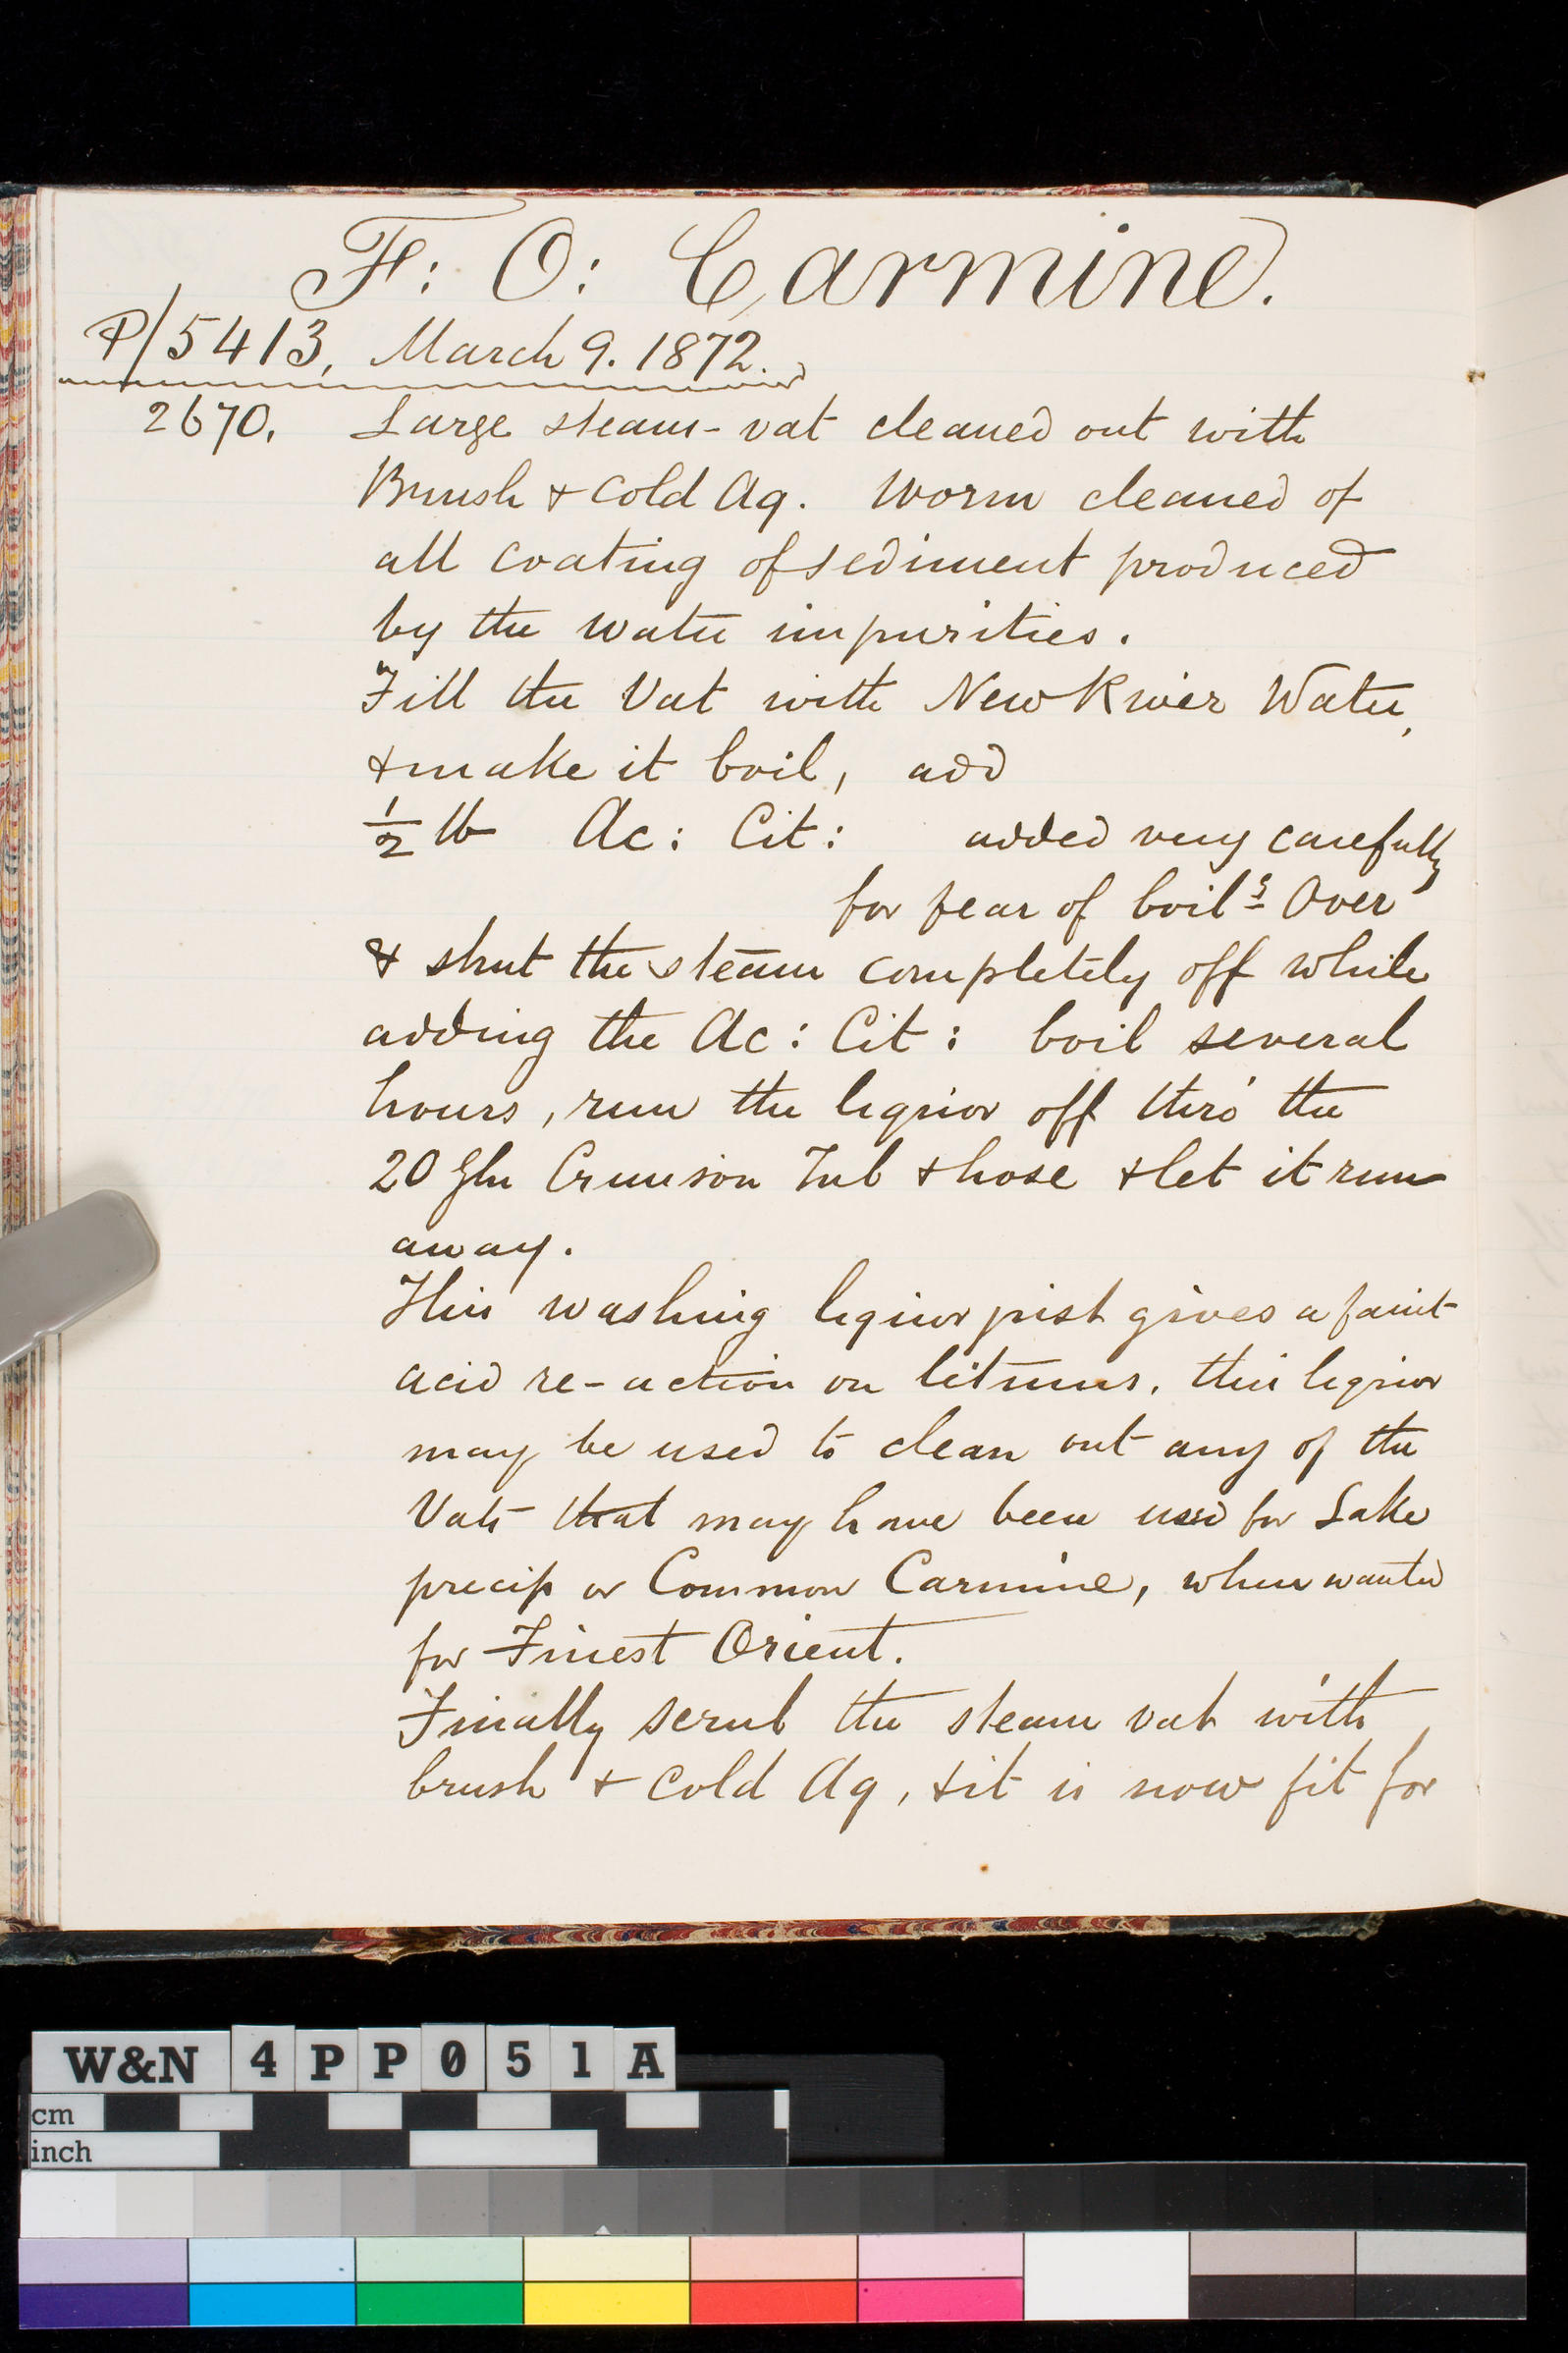 F: O: Carmine.
P/5413, March 9. 1872.
2670. Large steam-vat cleaned out with
Brush & cold Aq. Worm cleaned of
all coating of sediment produced
by the water impurities.
Fill the Vat with New River Water,
& make it boil, add
½ lb Ac: Cit: added very carefully
for fear of boilg over
& shut the steam completely off while
adding the Ac: Cit: boil several
hours, run the liquor off thro' the
20 Gln Crimson Tub & hose & let it run
away.
This washing liquor just gives a faint
acid re-action on litmus. this liquor
may be used to clean out any of the
Vats that may have been used for Lake
precip or Common Carmine, when wanted
for Finest Orient.
Finally scrub the steam vat with
brush & cold Aq, & it is now fit for
W&N 4PP051A
cm
inch